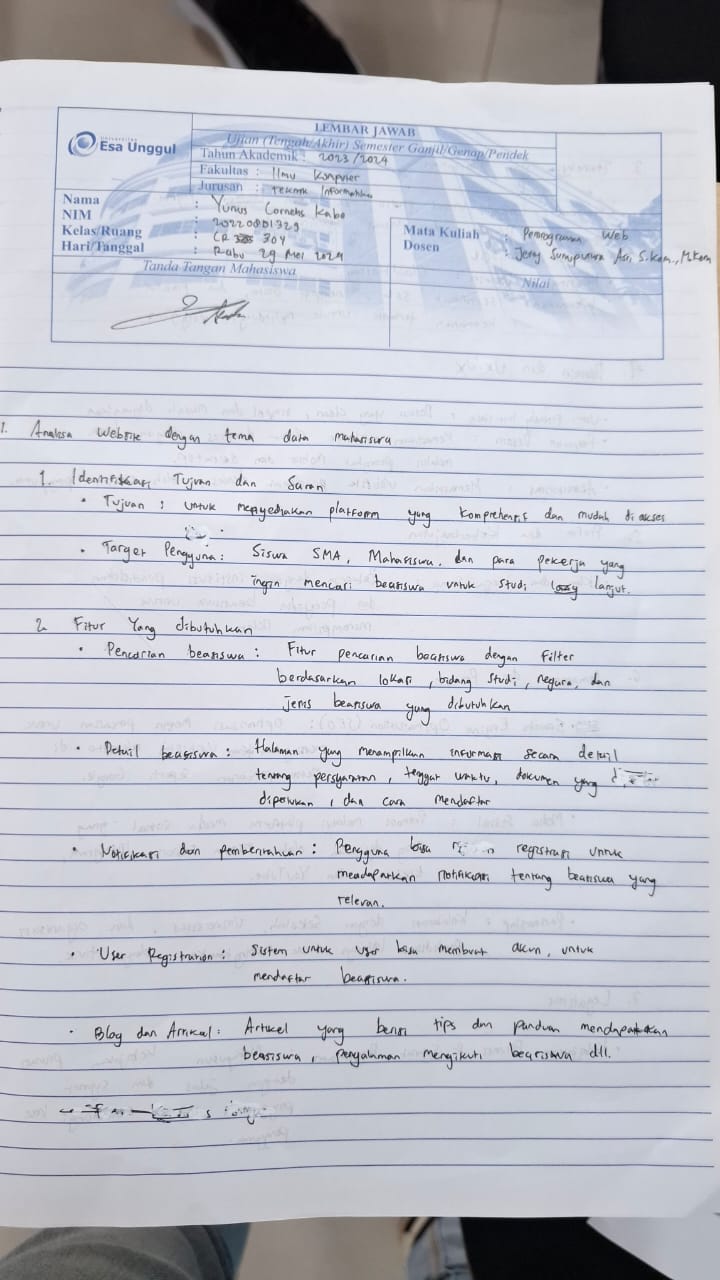 UNIVERSITAS
Esa Unggul
LEMBAR JAWAB
Ujian (Tengah/Akhir) Semester Ganjil/Genap/Pendek
Tahun Akademik : 2023/2024
Fakultas : Ilmu Komputer
Jurusan : Teknik Informatika
Nama : Yunus Cornelis Kabo
NIM : 20220801329
Kelas/Ruang : CR 304
Hari/Tanggal : Rabu 29 Mei 2024
Mata Kuliah : Pemrograman Web
Dosen : Jerry S.Kom., M.Kom
Tanda Tangan Mahasiswa
Nilai
1. Analisa Website dengan tema data mahasiswa
1. Identifikasi Tujuan dan Saran
• Tujuan : untuk menyediakan platform yang komprehensif dan mudah di akses
• Target Pengguna : Siswa SMA, Mahasiswa, dan para pekerja yang
ingin mencari beasiswa untuk studi lanjut.
2. Fitur Yang dibutuhkan
• Pencarian beasiswa : Fitur pencarian beasiswa dengan Filter
berdasarkan lokasi, bidang studi, negara, dan
jenis beasiswa yang dibutuhkan
• Detail beasiswa : Halaman yang menampilkan informasi secara detail
tentang persyaratan, tenggat waktu, dokumen yang
diperlukan, dan cara mendaftar
• Notifikasi dan pemberitahuan : Pengguna bisa registrasi untuk
meadapatkan notifikasi tentang beasiswa yang
relevan.
• User Registration : Sistem untuk user bisa membuat akun, untuk
mendaftar beasiswa.
• Blog dan Artikel : Artikel yang berisi tips dan panduan mendapatkan
beasiswa, pengalaman mengikuti beasiswa dll.